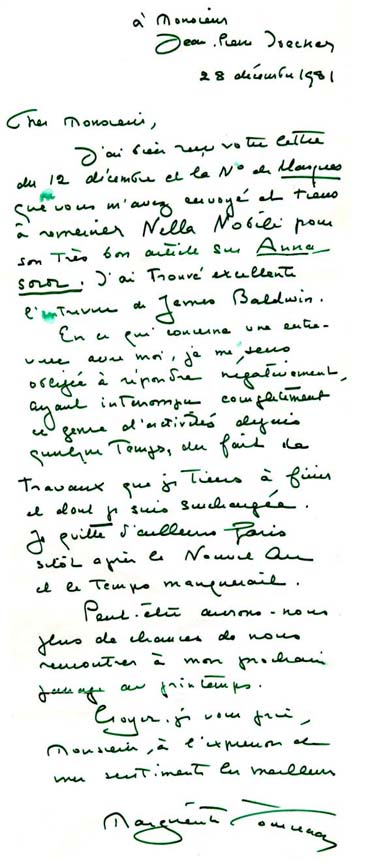 à Monsieur
Jean-Pierre Joecker
28 décembre 1981
Cher Monsieur,
J'ai bien reçu votre lettre
du 12 décembre et le No de Masques
que vous m'avez envoyé et tiens
à remercier Nella Nobili pour
son très bon article sur Anna
soror. J'ai trouvé excellente
l'interview de James Baldwin.
En ce qui concerne une entre-
vue avec moi, je me sens
obligée à répondre négativement,
ayant interrompu complètement
ce genre d'activités depuis
quelque temps, du fait de
travaux que je tiens à finir
et dont je suis surchargée.
Je quitte d'ailleurs Paris
sitôt après le Nouvel An
et le temps manquerait.
Peut-être aurons-nous
plus de chances de nous
rencontrer à mon prochain
passage au printemps.
Croyez, je vous prie,
Monsieur, à l'expression de
mes sentiments les meilleurs
Marguerite Yourcenar